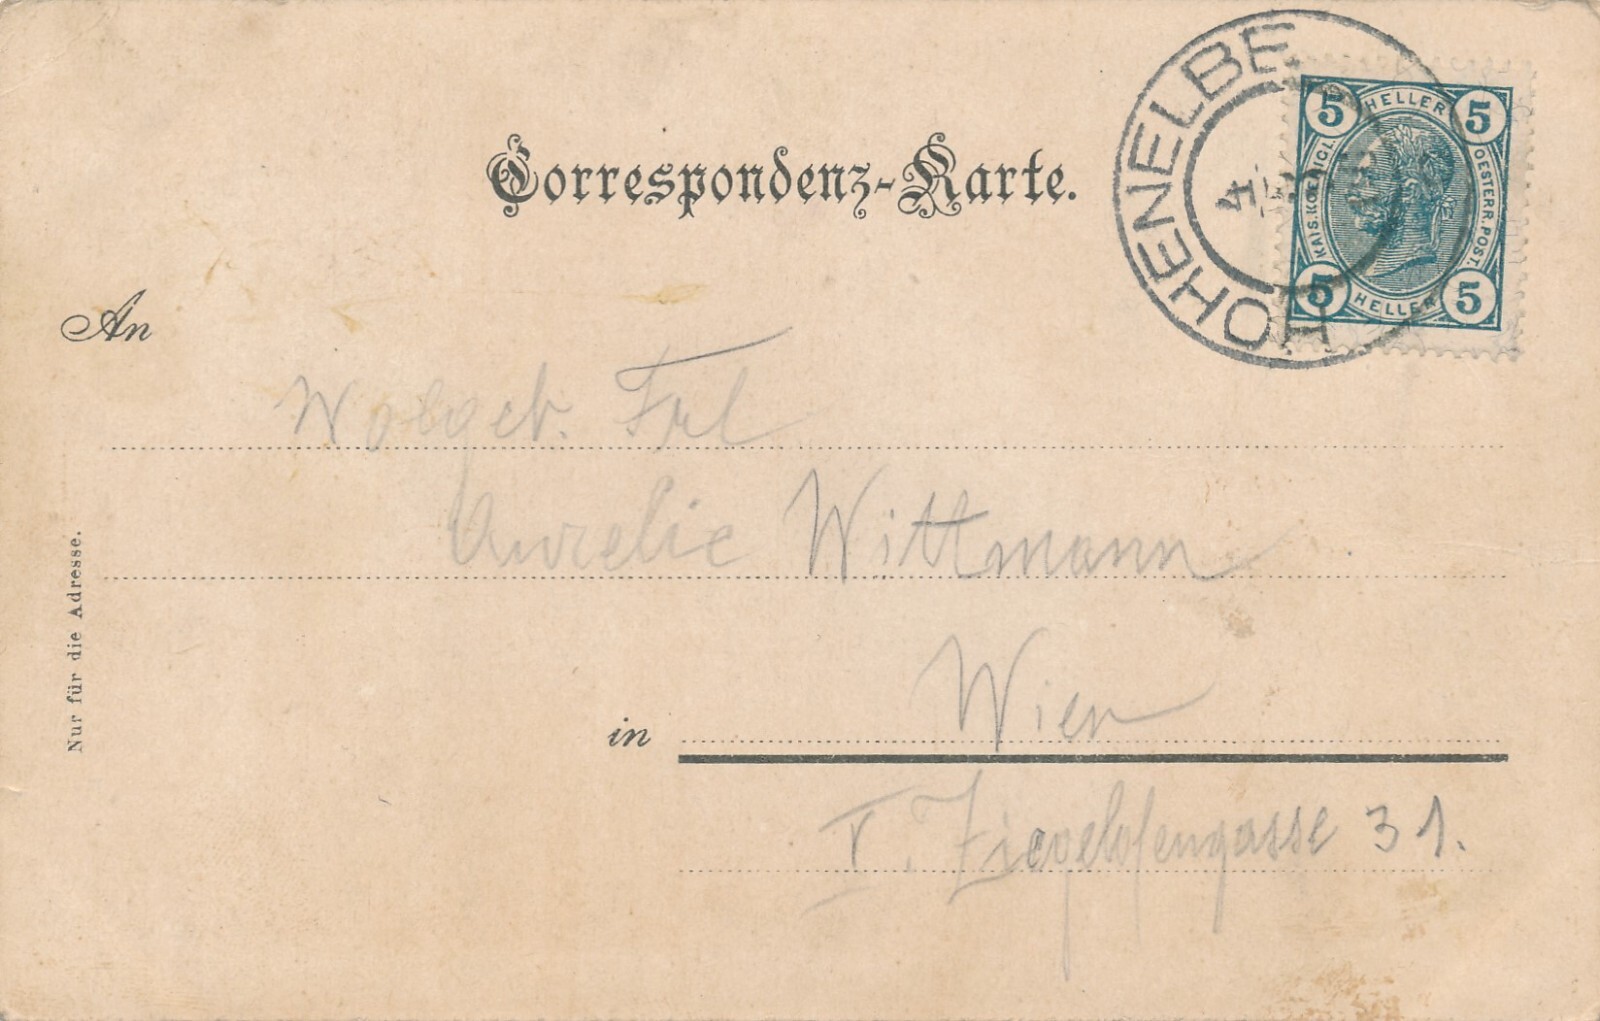 Correspondenz-Karte.
HOHENELBE
4
5 HELLER 5
KAIS. KOENIGL.
OESTERR. POST.
5 HELLER 5
An
Wolgeb. Frl
Aurelie Wittmann
in Wien
V. Ziegelofengasse 31.
Nur für die Adresse.